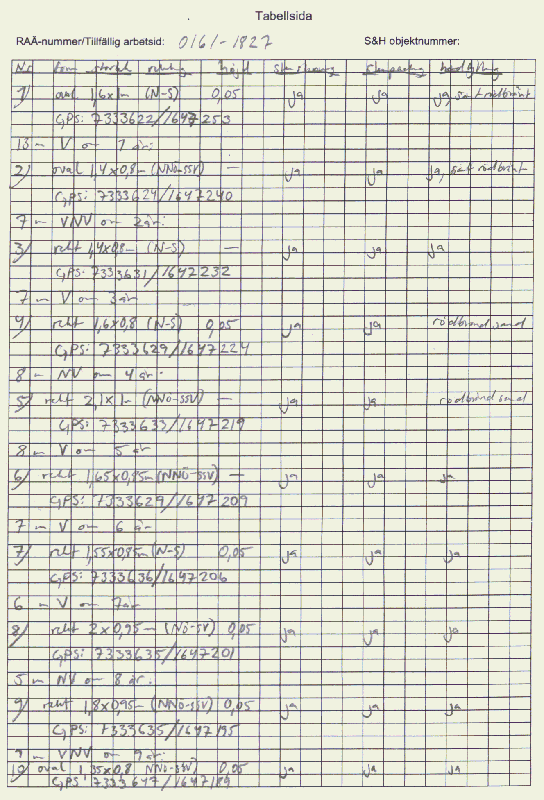 Tabellsida
RAÄ-nummer/Tillfällig arbetsid: 0161-1827 S&H objektnummer:
Nr form storlek riktning höjd
1) oval 1,6x1m (N-S) 0,05 ja ja ja, sat rödbränt
GPS: 7333622//1647253
13 m V om 1 är:
2) oval 1,4x0,8m (NNÖ-SSV) — ja ja ja, sat rödbränt
GPS: 7333624/1647240
7 m VNV om 2 är:
3) rekt 1,4x0,8m (N-S) — ja ja ja
GPS: 7333631/1647232
7 m V om 3 är
4) rekt 1,6x0,8 (N-S) 0,05 ja ja rödbränd sand
GPS: 7333629/1647224
8 m NV om 4 är:
5) rekt 2,1x1m (NNÖ-SSV) — ja ja rödbränd sand
GPS: 7333633/1647219
8 m V om 5 är
6) rekt 1,65x0,85m (NNÖ-SSV) — ja ja ja
GPS: 7333629/1647209
7 m V om 6 är
7) rekt 1,55x0,85m (N-S) 0,05 ja ja ja
GPS: 7333636/1647206
6 m V om 7 är
8) rekt 2x0,95m (NÖ-SV) 0,05 ja ja ja
GPS: 7333635/1647201
5 m NV om 8 är:
9) rekt 1,8x0,95m (NNÖ-SSV) 0,05 ja ja ja
GPS: 7333635/1647195
m VNV om 9 är:
10) oval 1,35x0,8 NNÖ-SSV) 0,05 ja ja ja
GPS: 7333647/1647189